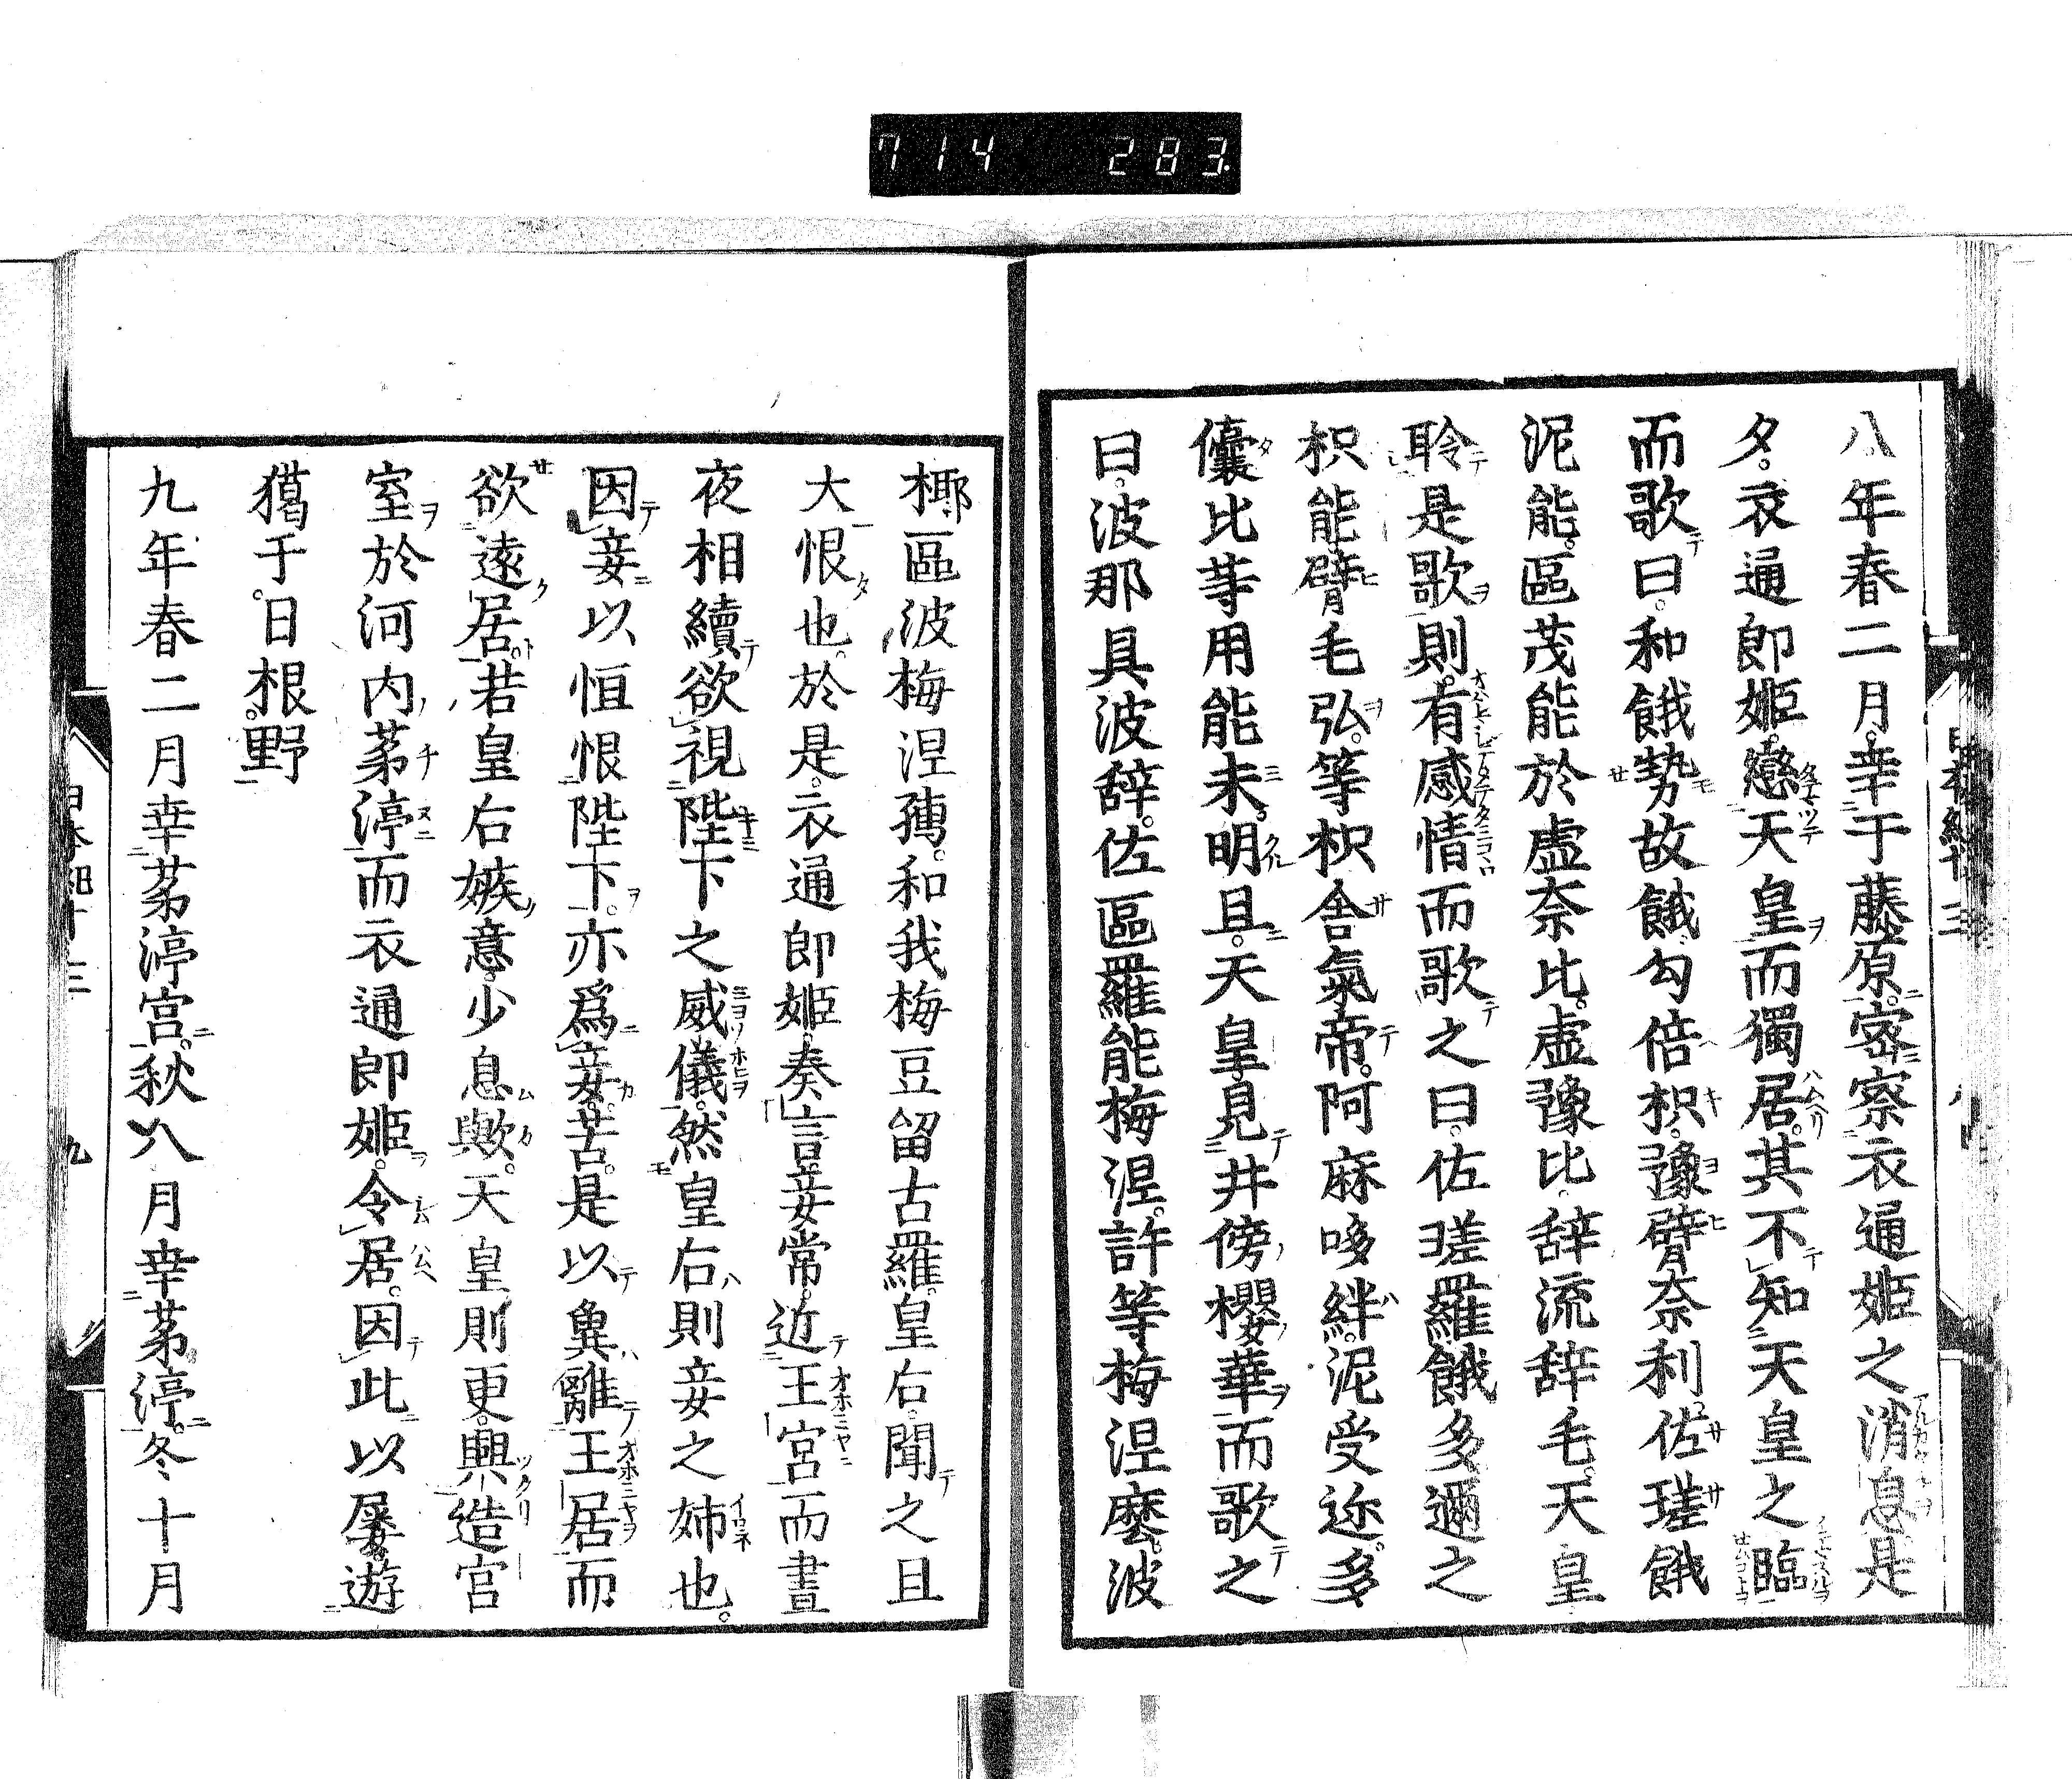 714 283
八年春二月幸于藤原密察衣通姫之消息是
夕衣通郎姫戀天皇而獨居其不知天皇之臨
而歌曰和餓勢故餓勾倍枳豫臂奈利佐瑳餓
泥能區茂能於虛奈比虛豫比辞流辞毛天皇
聆是歌則有感情而歌之曰佐瑳羅餓多邇之
枳能臂毛弘等枳舎氣帝阿麻哆絆泥受迩多
儾比等用能未明旦天皇見井傍櫻華而歌之
曰波那具波辞佐區羅能梅涅許等梅涅麼波
椰區波梅涅孺和我梅豆留古羅皇右聞之且
大恨也於是衣通郎姫奏言妾常近王宮而晝
夜相續欲視陛下之威儀然皇右則妾之姉也
因妾以恒恨陛下亦爲妾苦是以冀離王居而
欲遠居若皇右嫉意少息歟天皇則更興造宮
室於河内茅渟而衣通郎姫令居因此以屢遊
獦于日根野
九年春二月幸茅渟宮秋八月幸茅渟冬十月
九